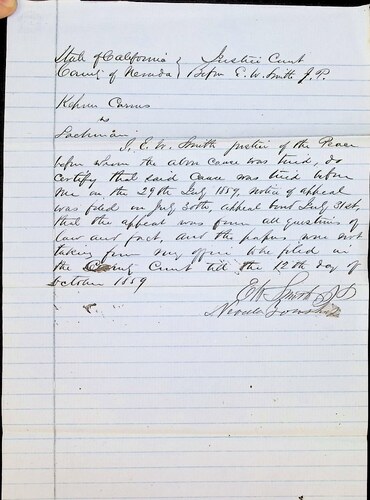 State of California } Justice Court
County of Nevada } Before E. W. Smith J. P.
vs
Lachman
I, E. W. Smith justice of the Peace
before whom the above cause was tried, do
certify that said cause was tried before
me on the 29th July 1859, notice of appeal
was filed on July 30th, appeal bond July 31st,
that the appeal was from all questions of
law and fact, and the papers were not
taken from my office to be filed in
the County Court till the 12th day of
October 1859
E W Smith J P
Nevada Township